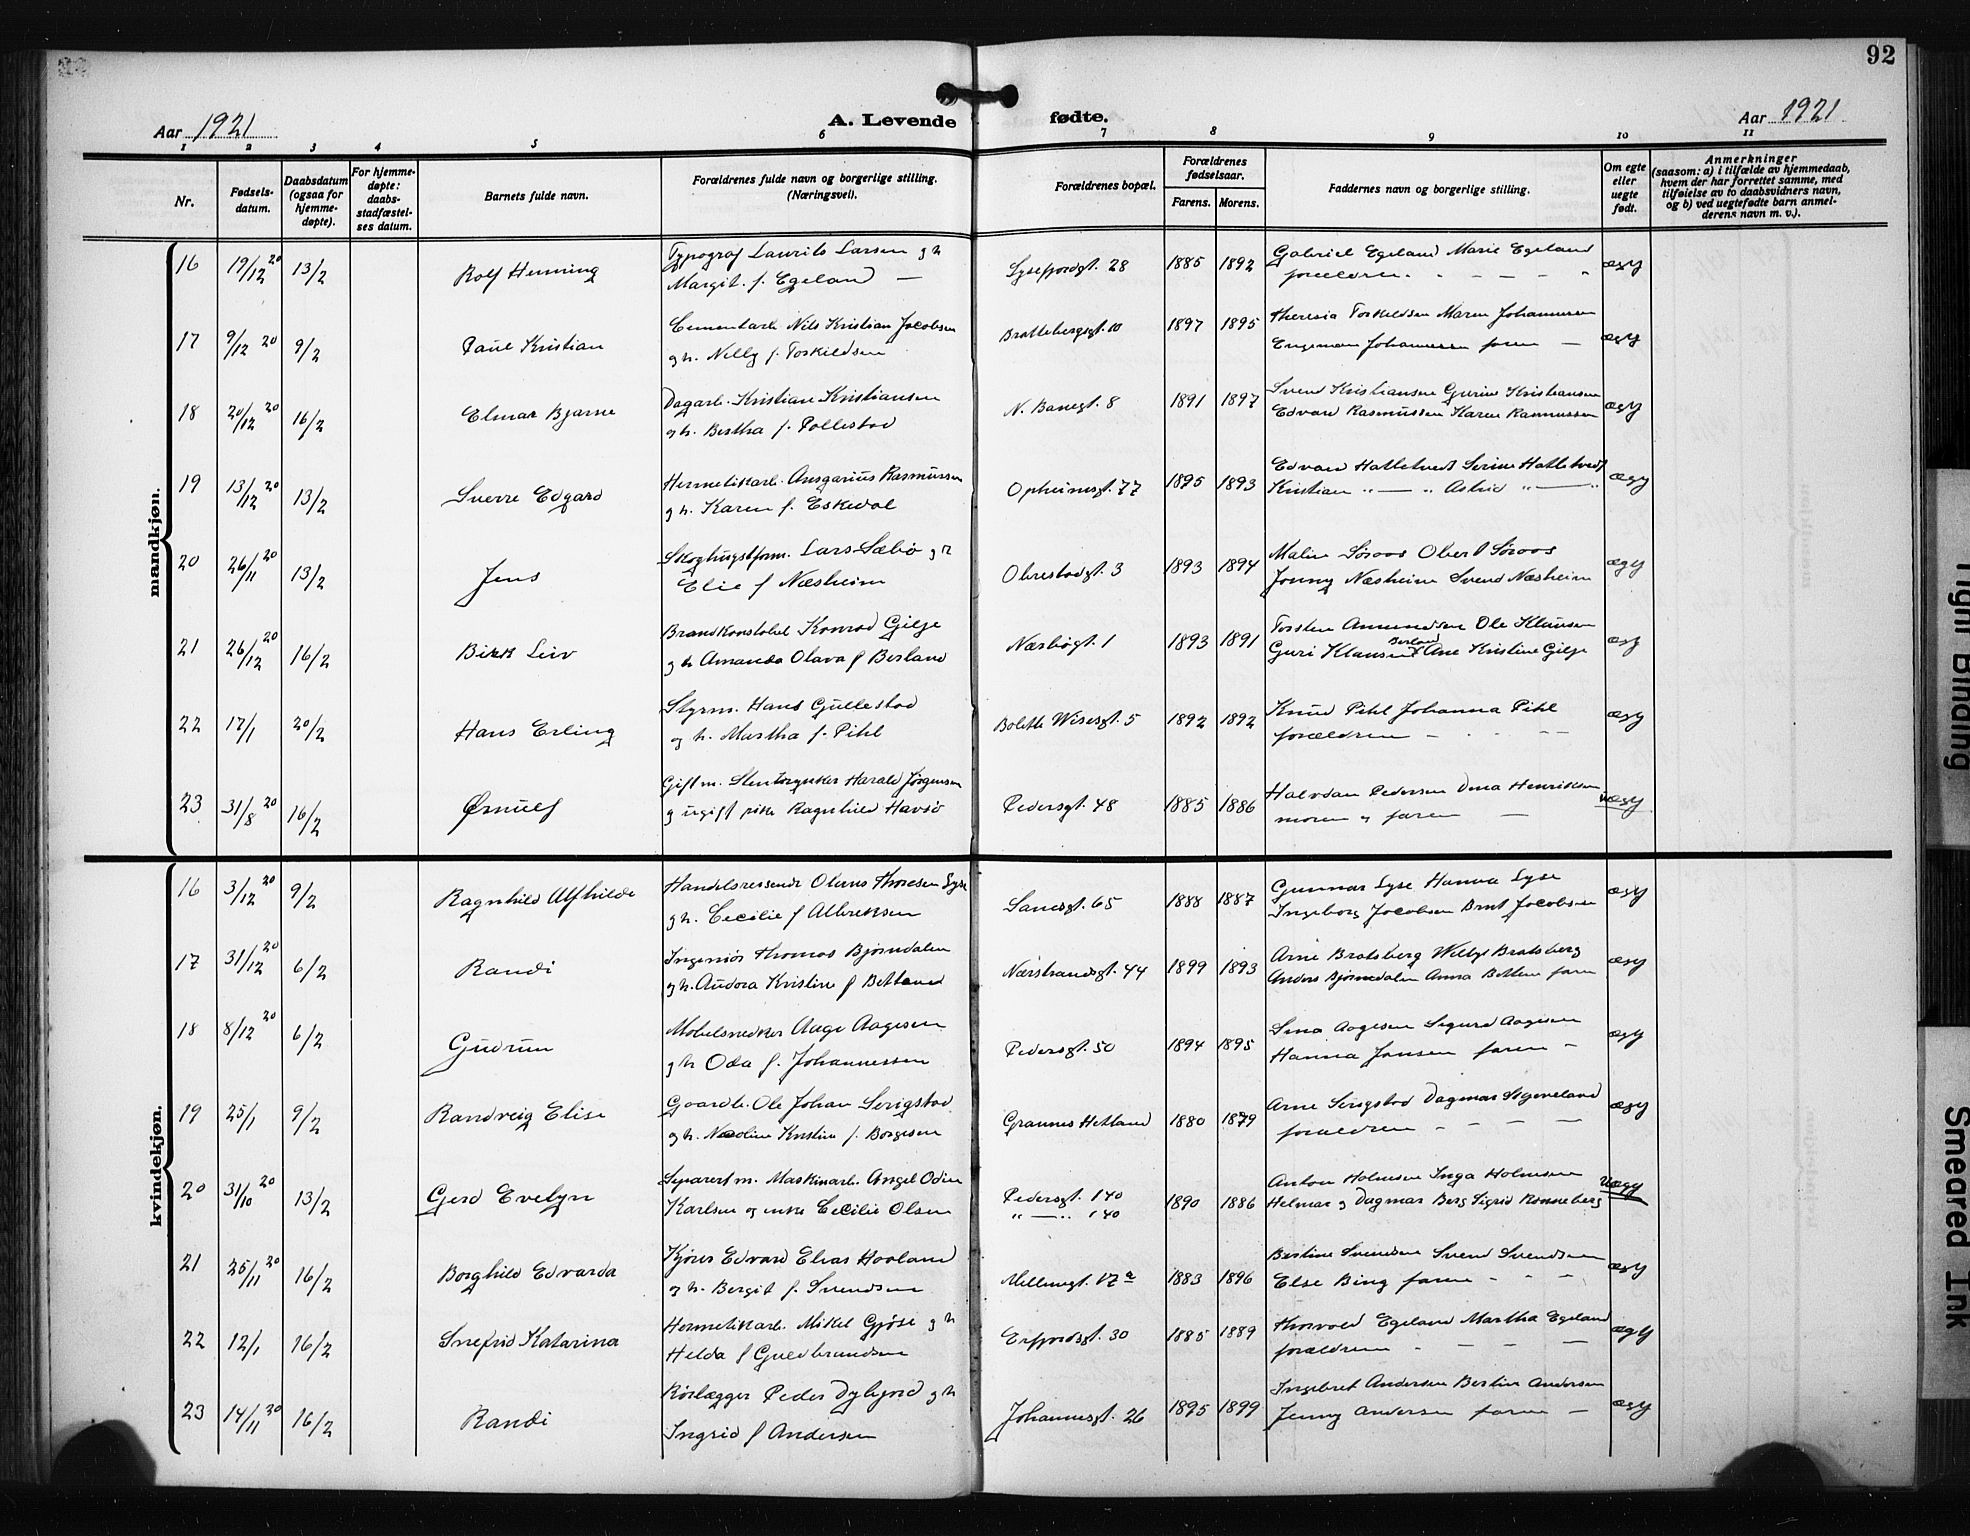 92
Aar 1921
A. Levende fødte.
Aar 1921
1 2 3 4 5 6 7 8 9 10 11
Nr.
Fødsels-
datum.
Daabsdatum
(ogsaa for
hjemme-
døpte).
For hjemme-
døpte:
daabs-
stadfæstel-
ses datum.
Barnets fulde navn.
Forældrenes fulde navn og borgerlige stilling.
(Næringsvei).
Forældrenes bopæl.
Forældrenes
fødselsaar.
Farens. Morens.
Faddernes navn og borgerlige stilling.
Om egte
eller
uegte
født.
Anmerkninger
(saasom: a) i tilfælde av hjemmedaab,
hvem der har forrettet samme, med
tilføielse av to daabsvidners navn,
og b) ved uegtefødte barn anmel-
derens navn m. v.).
mandkjøn.
16 19/12 20 13/2 Rolf Henning Typograf Laurits Larsen og h
Margit f. Egeland — Lysefjordgt. 28 1885 1892 Gabriel Egeland Marie Egeland
forældrene ægt
17 9/12 20 9/2 Paul Kristian Cementarb. Nils Kristian Jacobsen
og h. Nelly f. Torkildsen Brattebergsgt. 10 1897 1895 Theresia Torkildsen Maren Johannesen
Engeman Johannessen faren — ægt
18 20/12 20 16/2 Elmar Bjarne Dagarb. Kristian Kristiansen
og h. Bertha f. Pollestad N. Banegt. 8 1891 1897 Svend Kristiansen Gurine Kristiansen
Edvard Rasmussen Karen Rasmussen ægt
19 13/12 20 13/2 Sverre Edgard Hermetikarb. Ansgarius Rasmussen
og h. Karen f. Eskedal Opheimsgt. 77 1895 1893 Edvard Hatletvedt Serine Hatletvedt
Kristian „ — „ Astrid „ — „ ægt
20 26/11 20 13/2 Jens Skoghugstform. Lars Sæbø og h
Elie f Næsheim Obrestadgt. 3 1893 1894 Malin Søraas Obert Søraas
Jonny Næsheim Svend Næsheim ægt
21 26/12 20 16/2 Birk Leiv Brandkonstabel Konrad Gilje
og h Amanda Olava f Berland Nærbøgt. 1 1893 1891 Torsten Amundsen Ole Klausen
Berland
Guri Klausen Ane Kristine Gilje ægt
22 17/1 20/2 Hans Erling Styrm. Hans Gullestad
og h. Martha f. Pihl Bolette Wiesesgt. 5 1892 1892 Knud Pihl Johanna Pihl
forældrene ægt
23 31/8 20 16/2 Ørnulf Gift m. Stentorynker Harald Jørgensen
og ugift pike Ragnhild Havsø Pedersgt. 48 1885 1886 Halvdan Pedersen Dina Henriksen
moren og faren — uægt
kvindekjøn.
16 3/12 20 9/2 Ragnhild Alfhilde Handelsreisende Olaus Thoresen Lyse
og h. Cecilie f Albreksen Sandsgt. 65 1888 1887 Gunnar Lyse Hanna Lyse
Ingeborg Jacobsen Bernt Jacobsen ægt
17 31/12 20 6/2 Randi Ingeniør Thomas Bjørndalen
og h. Audora Kristine f Betland Nærstrandsgt. 44 1899 1893 Arne Bratsberg Welby Bratsberg
Anders Bjørndalen Anna Betten faren ægt
18 8/12 20 6/2 Gudrun Møbelsnedker Aage Aagesen
og h Oda f. Johannessen Pedersgt. 50 1894 1895 Sina Aagesen Sigurd Aagesen
Hanna Jansen faren - ægt
19 25/1 9/2 Randveig Elise Gaardb. Ole Johan Serigstad
og h. Nicoline Kristine f. Borgesen Grannes Hetland 1880 1879 Arne Serigstad Dagmar Stgeneland
forældrene ægt
20 31/10 20 13/2 Gerd Evelyn Separert m. Maskinarb. Angel Odin
Karlsen og enke Cecilie Olsen Pedersgt. 140
„ — „ 140 1890 1886 Anton Holmsen Inga Holmsen
Helmar og Dagmar Berg Sigrid Rønneberg Uægt
21 25/11 20 16/2 Borghild Edvarda Kjører Edvard Elias Haaland
og h. Bergit f. Svendsen Møllengt. 17a 1883 1896 Bertine Svendsen Svend Svendsen
Else Bing faren ægt
22 12/1 16/2 Snefrid Katarina Hermetikarb. Mikel Gjøse og h
Helda f Guldbrandsen Erfjordsgt. 30 1885 1889 Thorvald Egeland Martha Egeland
forældrene ægt
23 14/11 20 16/2 Randi Rørlægger Peder Dybfjord og h
Ingrid f Andersen Johannesgt. 26 1895 1899 Ingebret Andersen Bertin Andersen
Jenny Andersen faren — ægt
Tight Binding
Smeared Ink